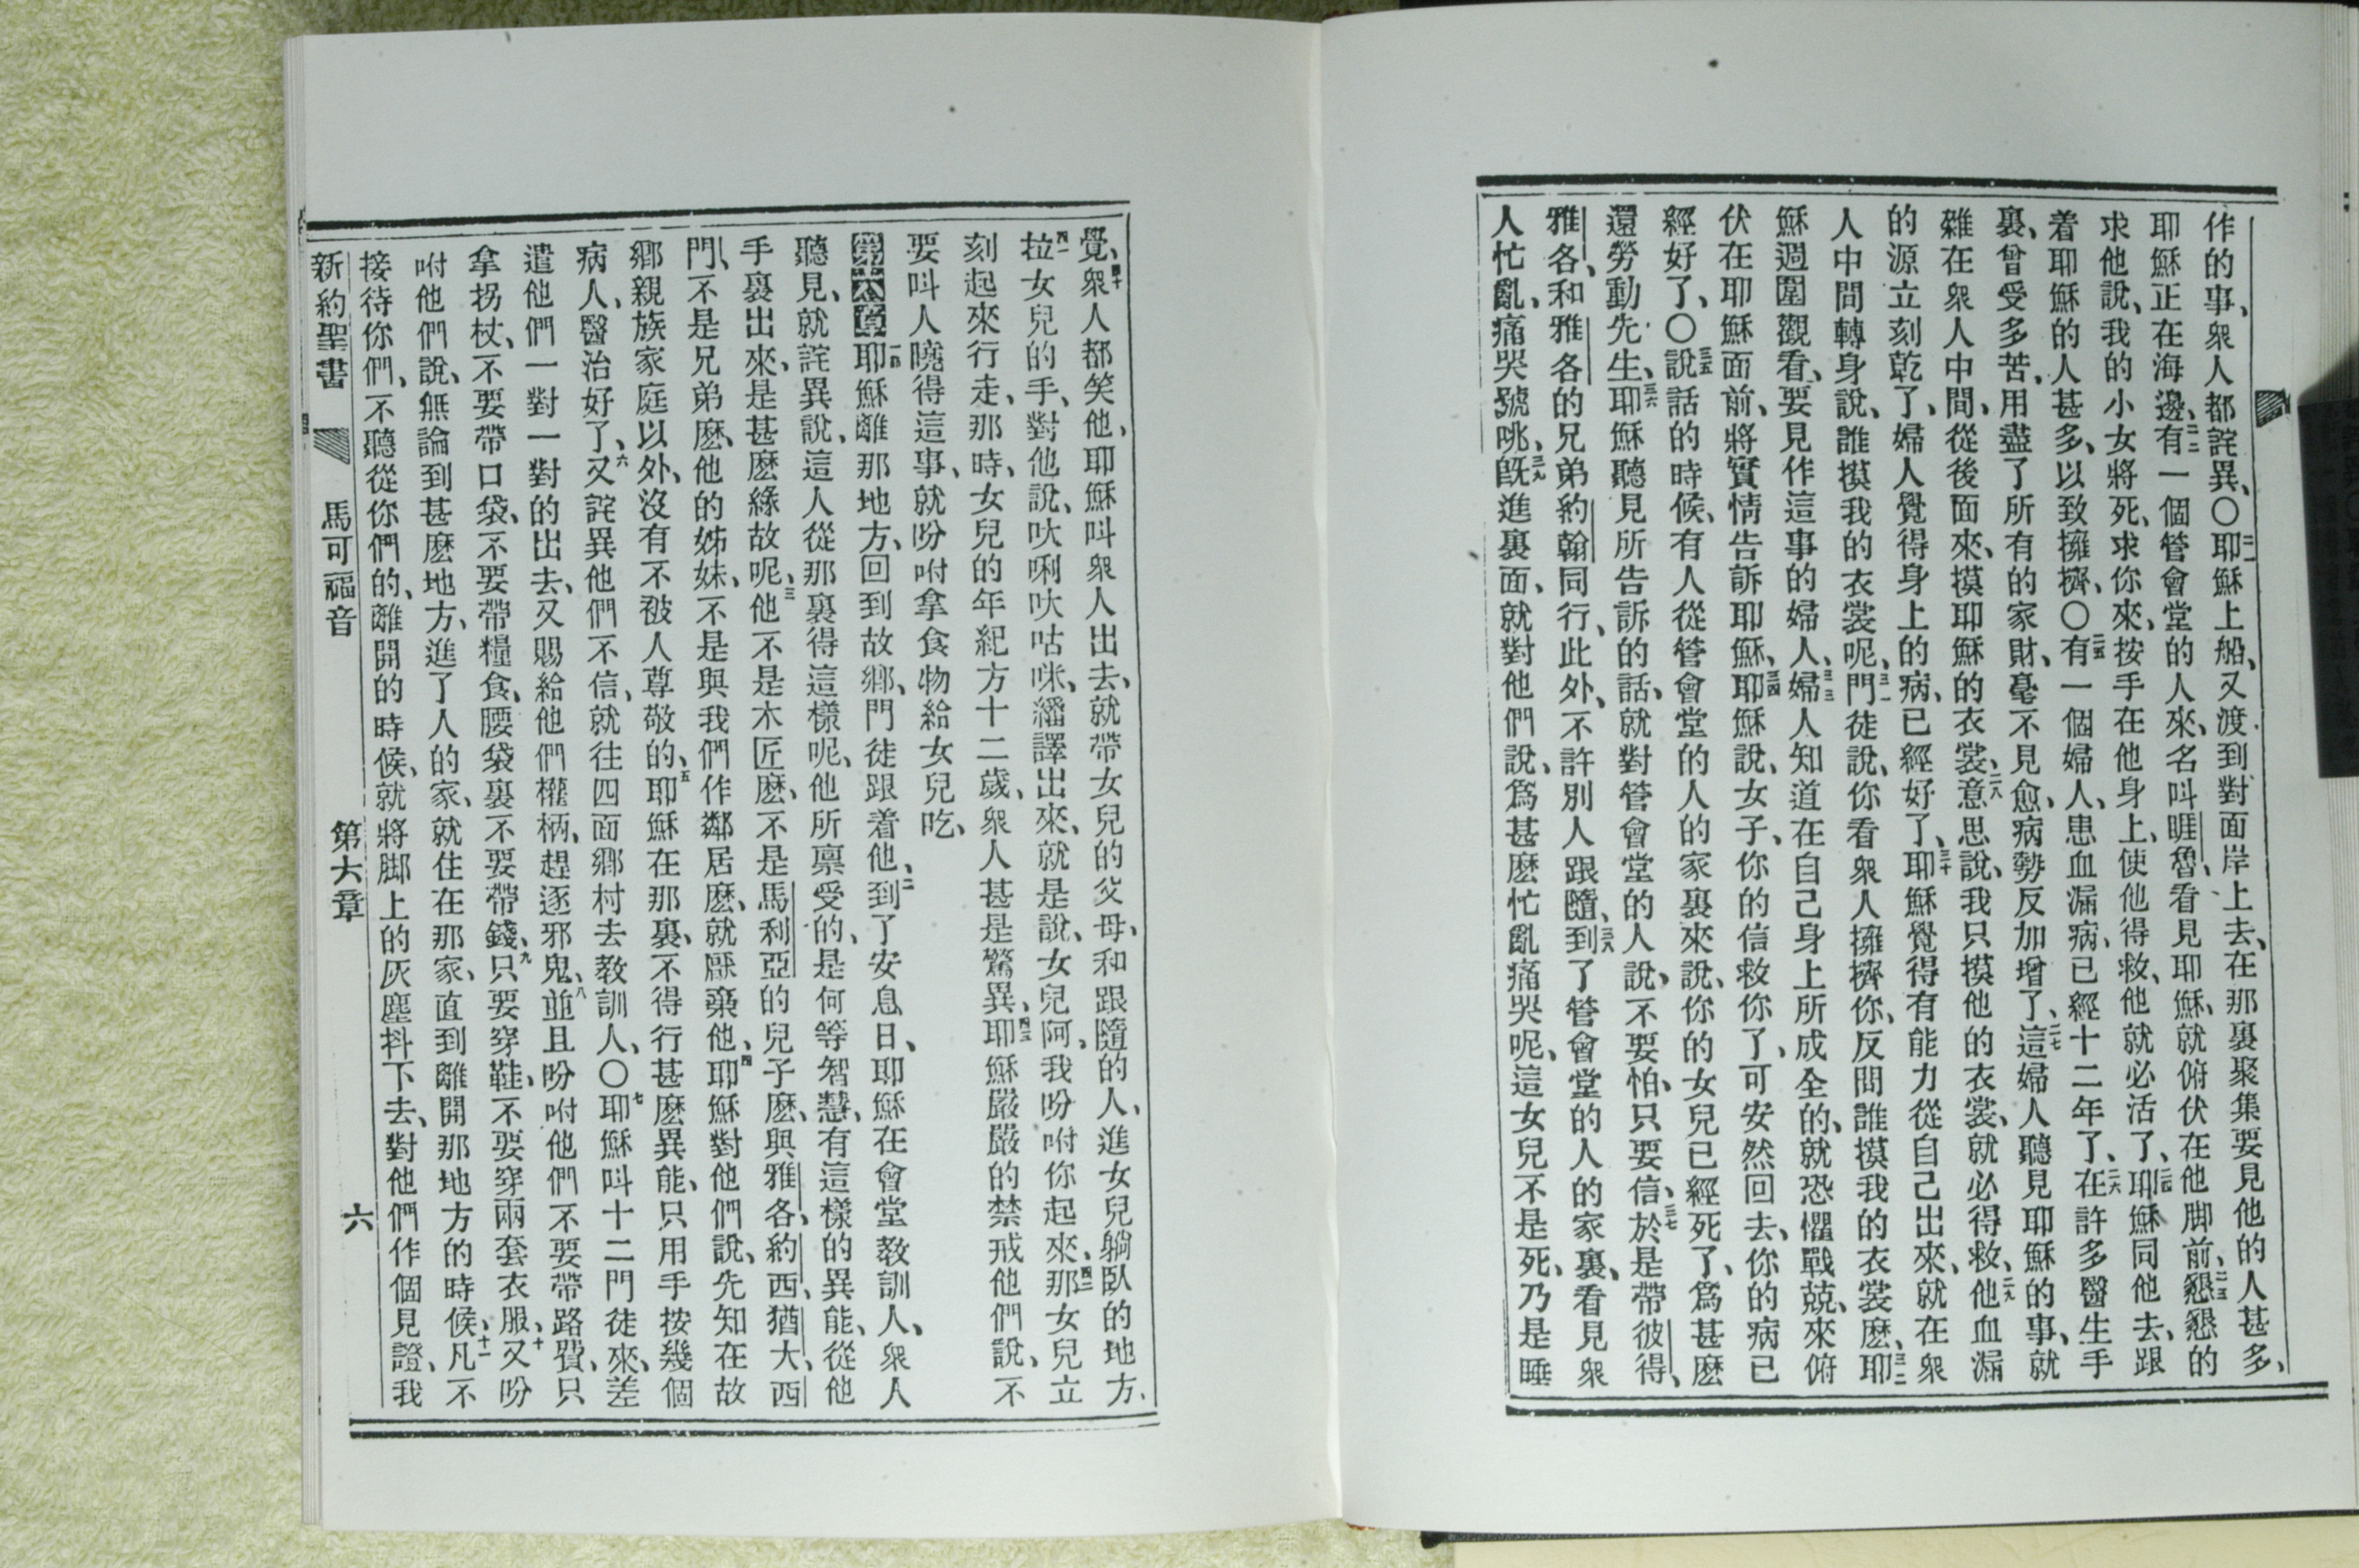 作的事、衆人都詫異、〇二一耶穌上船、又渡到對面岸上去、在那裏聚集要見他的人甚多、
耶穌正在海邊、二二有一個管會堂的人來、名叫睚魯、看見耶穌、就俯伏在他脚前、二三懇懇的
求他說、我的小女將死、求你來、按手在他身上、使他得救、他就必活了、二四耶穌同他去、跟
着耶穌的人甚多、以致擁擠、〇二五有一個婦人、患血漏病、已經十二年了、二六在許多醫生手
裏、曾受多苦、用盡了所有的家財、毫不見愈、病勢反加增了、二七這婦人聽見耶穌的事、就
雜在衆人中間、從後面來、摸耶穌的衣裳、二八意思說、我只摸他的衣裳、就必得救、二九他血漏
的源立刻乾了、婦人覺得身上的病、已經好了、三十耶穌覺得有能力從自己出來、就在衆
人中間轉身說、誰摸我的衣裳呢、三一門徒說、你看衆人擁擠你、反問誰摸我的衣裳麽、三二耶
穌週圍觀看、要見作這事的婦人、三三婦人知道在自己身上所成全的、就恐懼戰兢、來俯
伏在耶穌面前、將實情告訴耶穌、三四耶穌說、女子、你的信救你了、可安然回去、你的病已
經好了、〇三五說話的時候、有人從管會堂的人的家裏來說、你的女兒已經死了、爲甚麽
還勞動先生、三六耶穌聽見所告訴的話、就對管會堂的人說、不要怕、只要信、三七於是帶彼得、
雅各、和雅各的兄弟約翰同行、此外、不許別人跟隨、三八到了管會堂的人的家裏、看見衆
人忙亂、痛哭號咷、三九旣進裏面、就對他們說、爲甚麽忙亂痛哭呢、這女兒不是死、乃是睡
覺、四十衆人都笑他、耶穌叫衆人出去、就帶女兒的父母、和跟隨的人、進女兒躺臥的地方、
四一拉女兒的手、對他說、吠唎吠咕咪、繙譯出來、就是說、女兒阿、我吩咐你起來、四二那女兒立
刻起來行走、那時、女兒的年紀方十二歲、衆人甚是驚異、四三耶穌嚴嚴的禁戒他們說、不
要叫人曉得這事、就吩咐拿食物給女兒吃、
第六章 一節耶穌離那地方、回到故鄉、門徒跟着他、二到了安息日、耶穌在會堂教訓人、衆人
聽見、就詫異說、這人從那裏得這樣呢、他所禀受的、是何等智慧、有這樣的異能、從他
手裏出來、是甚麽緣故呢、三他不是木匠麽、不是馬利亞的兒子麽、與雅各、約西、猶大、西
門、不是兄弟麽、他的姊妹、不是與我們作鄰居麽、就厭棄他、四耶穌對他們說、先知在故
鄉親族家庭以外、沒有不被人尊敬的、五耶穌在那裏、不得行甚麽異能、只用手按幾個
病人、醫治好了、六又詫異他們不信、就往四面鄉村去教訓人、〇七耶穌叫十二門徒來、差
遣他們一對一對的出去、又賜給他們權柄、趕逐邪鬼、八並且吩咐他們不要帶路費、只
拿拐杖、不要帶口袋、不要帶糧食、腰袋裏不要帶錢、九只要穿鞋、不要穿兩套衣服、十又吩
咐他們說、無論到甚麽地方、進了人的家、就住在那家、直到離開那地方的時候、十一凡不
接待你們、不聽從你們的、離開的時候、就將脚上的灰塵抖下去、對他們作個見證、我
新約聖書 馬可福音 第六章 六